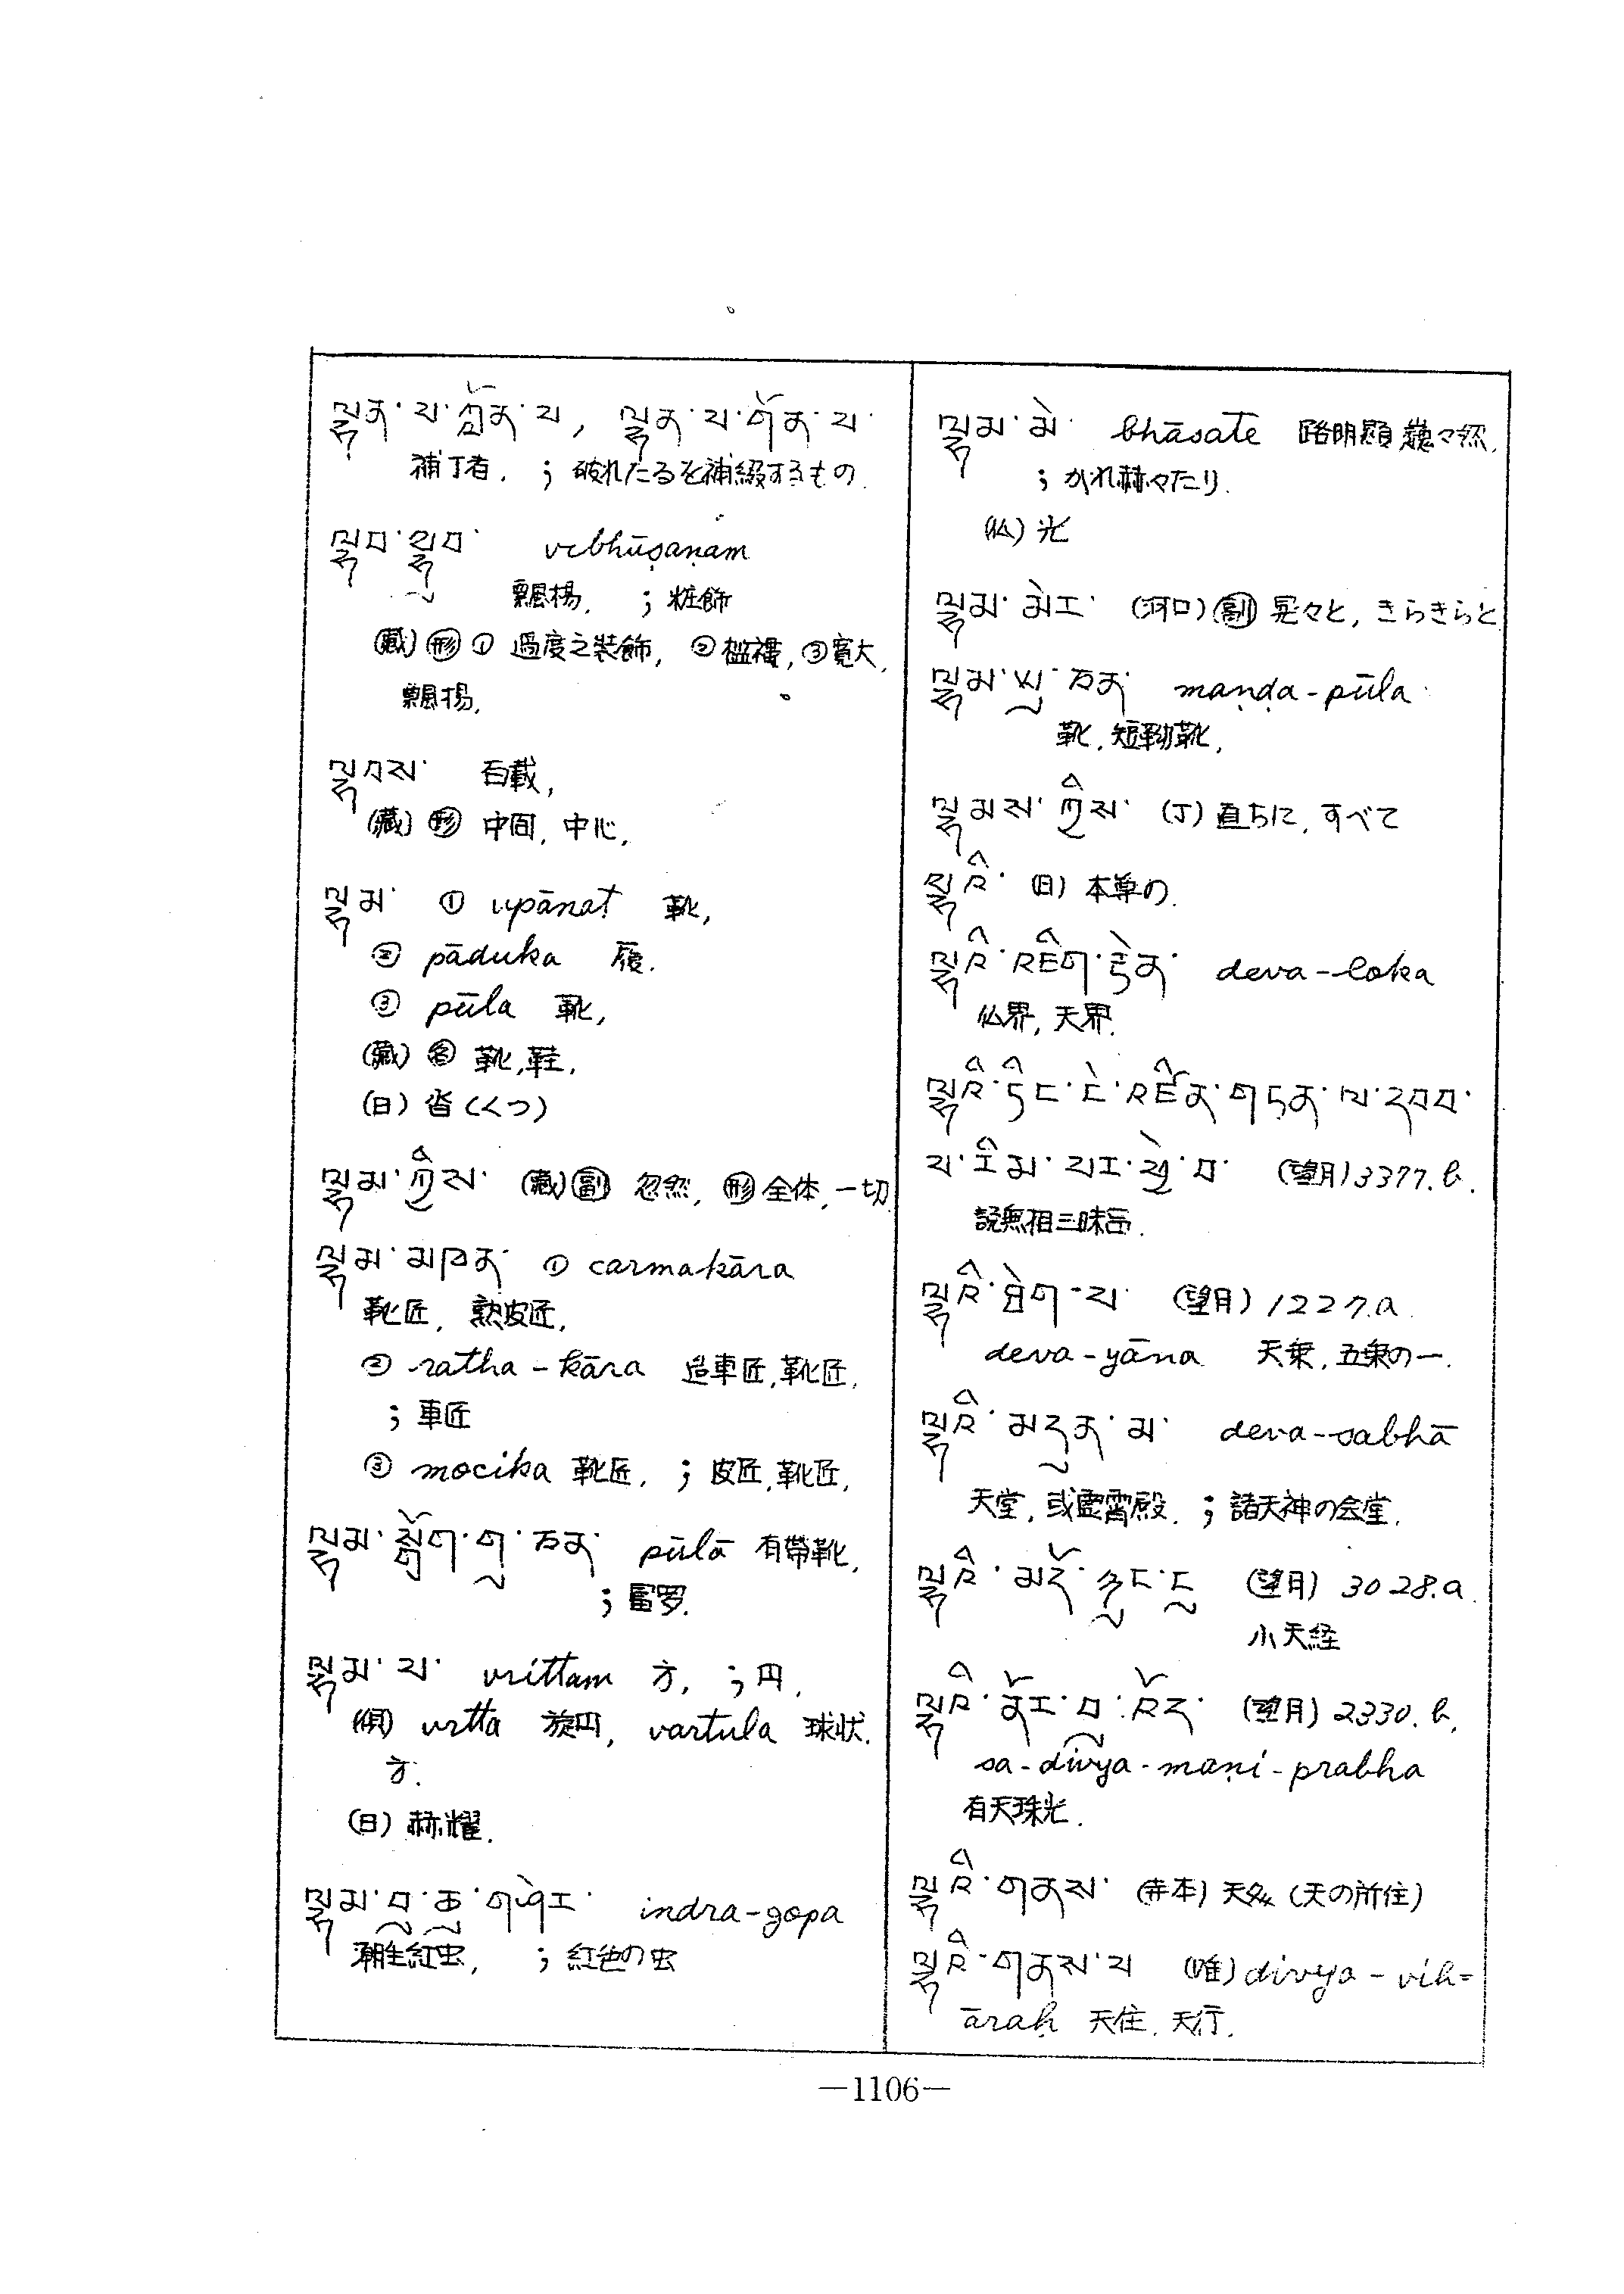 ལྷན་པ་ཀློན་པ, ལྷན་པ་གོན་པ་
補丁者. ; 破れたるを補綴するもの.
ལྷབ་ལྷུབ་ vibhūṣaṇam
飄揚. ; 粧飾
(藏) 形 ① 過度之装飾, ② 襤褸, ③ 寛大,
飄揚,
ལྷབས་
(藏) 形 中間, 中心,
ལྷམ་ ① upānaṭ 靴,
② pāduka 履.
③ pūla 靴,
(藏) 名 靴, 鞋,
(日) 沓 (くつ)
ལྷམ་ཀྱིས་ (藏) 副 忽然, 形 全体, 一切
ལྷམ་མཁན་ ① carmakāra
靴匠, 熟皮匠,
② ratha-kāra 造車匠, 靴匠,
; 車匠
③ mocika 靴匠, ; 皮匠, 靴匠,
ལྷམ་སྒྲོག་གུ་ཅན་ pūlā 有帶靴,
; 富罗.
ལྷམ་པ་ vrittam 方, ; 円,
vṛtta 旋円, vartula 球状.
方.
(日) 赫耀.
ལྷམ་བུ་ཆུ་གཤེར་ indra-gopa
潮生紅虫, ; 紅色の虫
ལྷམ་མེ་ bhāsate
; かれ赫々たり.
(仏) 光
ལྷམ་མེར་ (河口) 副 晃々と, きらきらと
ལྷམ་ཡུ་ཅན་ maṇḍa-pūla
靴, 短靿靴,
ལྷམས་ཀྱིས་ (丁) 直ちに, すべて
ལྷའི་ (日) 本尊の.
ལྷའི་འཇིག་རྟེན་ deva-loka
仏界, 天界.
ལྷའི་ཏིང་ངེ་འཛིན་གཏན་ལ་དབབ་
པ་རིམ་པར་ཕྱེ་བ་ (望月) 3377. b.
説無相三昧品.
ལྷའི་ཐེག་པ་ (望月) 1227. a
deva-yāna 天乗, 五乗の一.
ལྷའི་མདུན་མ་ deva-sabhā
天堂, 或靈霄殿. ; 諸天神の会堂.
ལྷའི་མདོ་ཉུང་ངུ (望月) 3028. a
小天経
ལྷའི་ནོར་བུ་འོད་ (望月) 2330. b.
sa-divya-maṇi-prabha
有天珠光.
ལྷའི་གནས་ (寺本) (天の所住)
ལྷའི་གནས་པ (唯) divya-vih=
āraḥ 天住, 天行.
—1106—